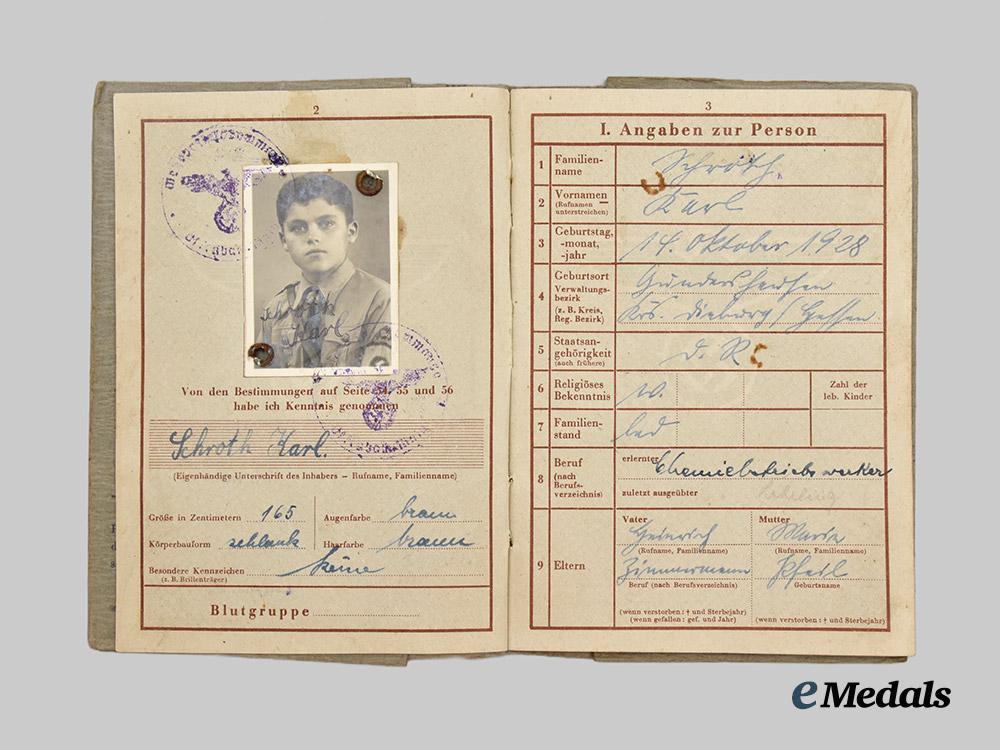 2
Schroth
Karl
Von den Bestimmungen auf Seite 54, 55 und 56
habe ich Kenntnis genommen
Schroth Karl.
(Eigenhändige Unterschrift des Inhabers – Rufname, Familienname)
Größe in Zentimetern 165
Augenfarbe braun
Körperbauform schlank
Haarfarbe braun
Besondere Kennzeichen keine
(z. B. Brillenträger)
Blutgruppe
3
I. Angaben zur Person
1 Familien-
name
Schroth.
2 Vornamen
(Rufnamen
unterstreichen)
Karl
3 Geburtstag,
-monat,
-jahr
14. Oktober 1928
4 Geburtsort
Verwaltungs-
bezirk
(z. B. Kreis,
Reg. Bezirk)
Gundershausen
Krs. Dieburg / Hessen.
5 Staatsan-
gehörigkeit
(auch frühere)
d. R.
6 Religiöses
Bekenntnis
Zahl der
leb. Kinder
7 Familien-
stand
led
8 Beruf
(nach
Berufs-
verzeichnis)
erlernter Chemiebetriebswerker
zuletzt ausgeübter
9 Eltern
Vater
Heinrich
(Rufname, Familienname)
Zimmermann
Beruf (nach Berufsverzeichnis)
(wenn verstorben: † und Sterbejahr)
(wenn gefallen: gef. und Jahr)
Mutter
Maria
(Rufname, Familienname)
Pfeil
Geburtsname
(wenn verstorben: † und Sterbejahr)
eMedals